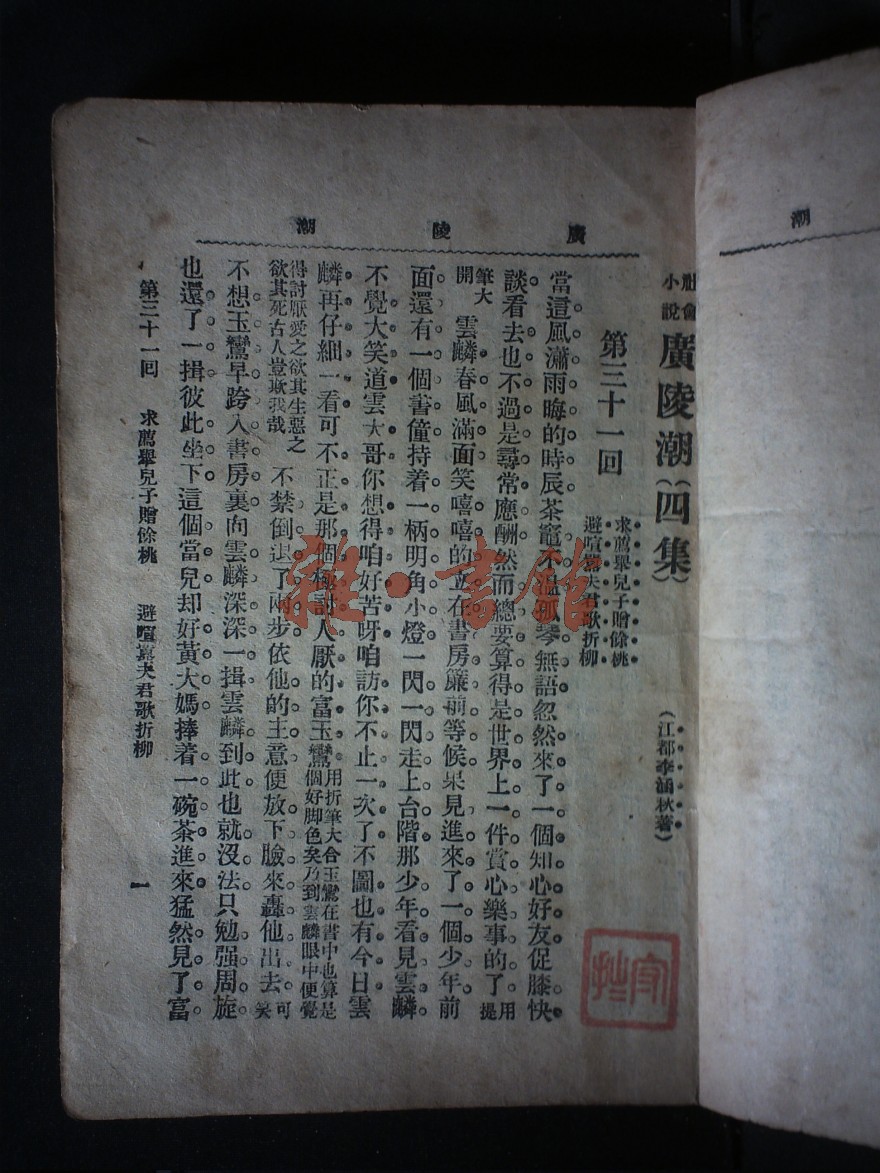 潮
廣陵潮
社會小說 廣陵潮(四集)
(江都李涵秋著)
第三十一回
求薦舉兒子贈餘桃
避喧囂夫君歌折柳
當這風瀟雨晦的時辰茶竈不溫孤琴無語忽然來了一個知心好友促膝快
談看去也不過是尋常應酬然而總要算得是世界上一件賞心樂事的了用提
筆大開雲麟春風滿面笑嘻嘻的立在書房簾前等候果見進來了一個少年前
面還有一個書僮持着一柄明角小燈一閃一閃走上台階那少年看見雲麟
不覺大笑道雲大哥你想得咱好苦呀咱訪你不止一次了不圖也有今日雲
麟再仔細一看可不正是那個極討人厭的富玉鸞用折筆大合玉鸞在書中也算是個好脚色矣乃到雲麟眼中便覺
得討厭愛之欲其生惡之欲其死古人豈欺我哉不禁倒退了兩步依他的主意便放下臉來轟他出去可笑
不想玉鸞早跨入書房裏向雲麟深深一揖雲麟到此也就沒法只勉强周旋
也還了一揖彼此坐下這個當兒却好黃大媽捧着一碗茶進來猛然見了富
第三十一回 求薦舉兒子贈餘桃 避喧囂夫君歌折柳 一
雜·書館